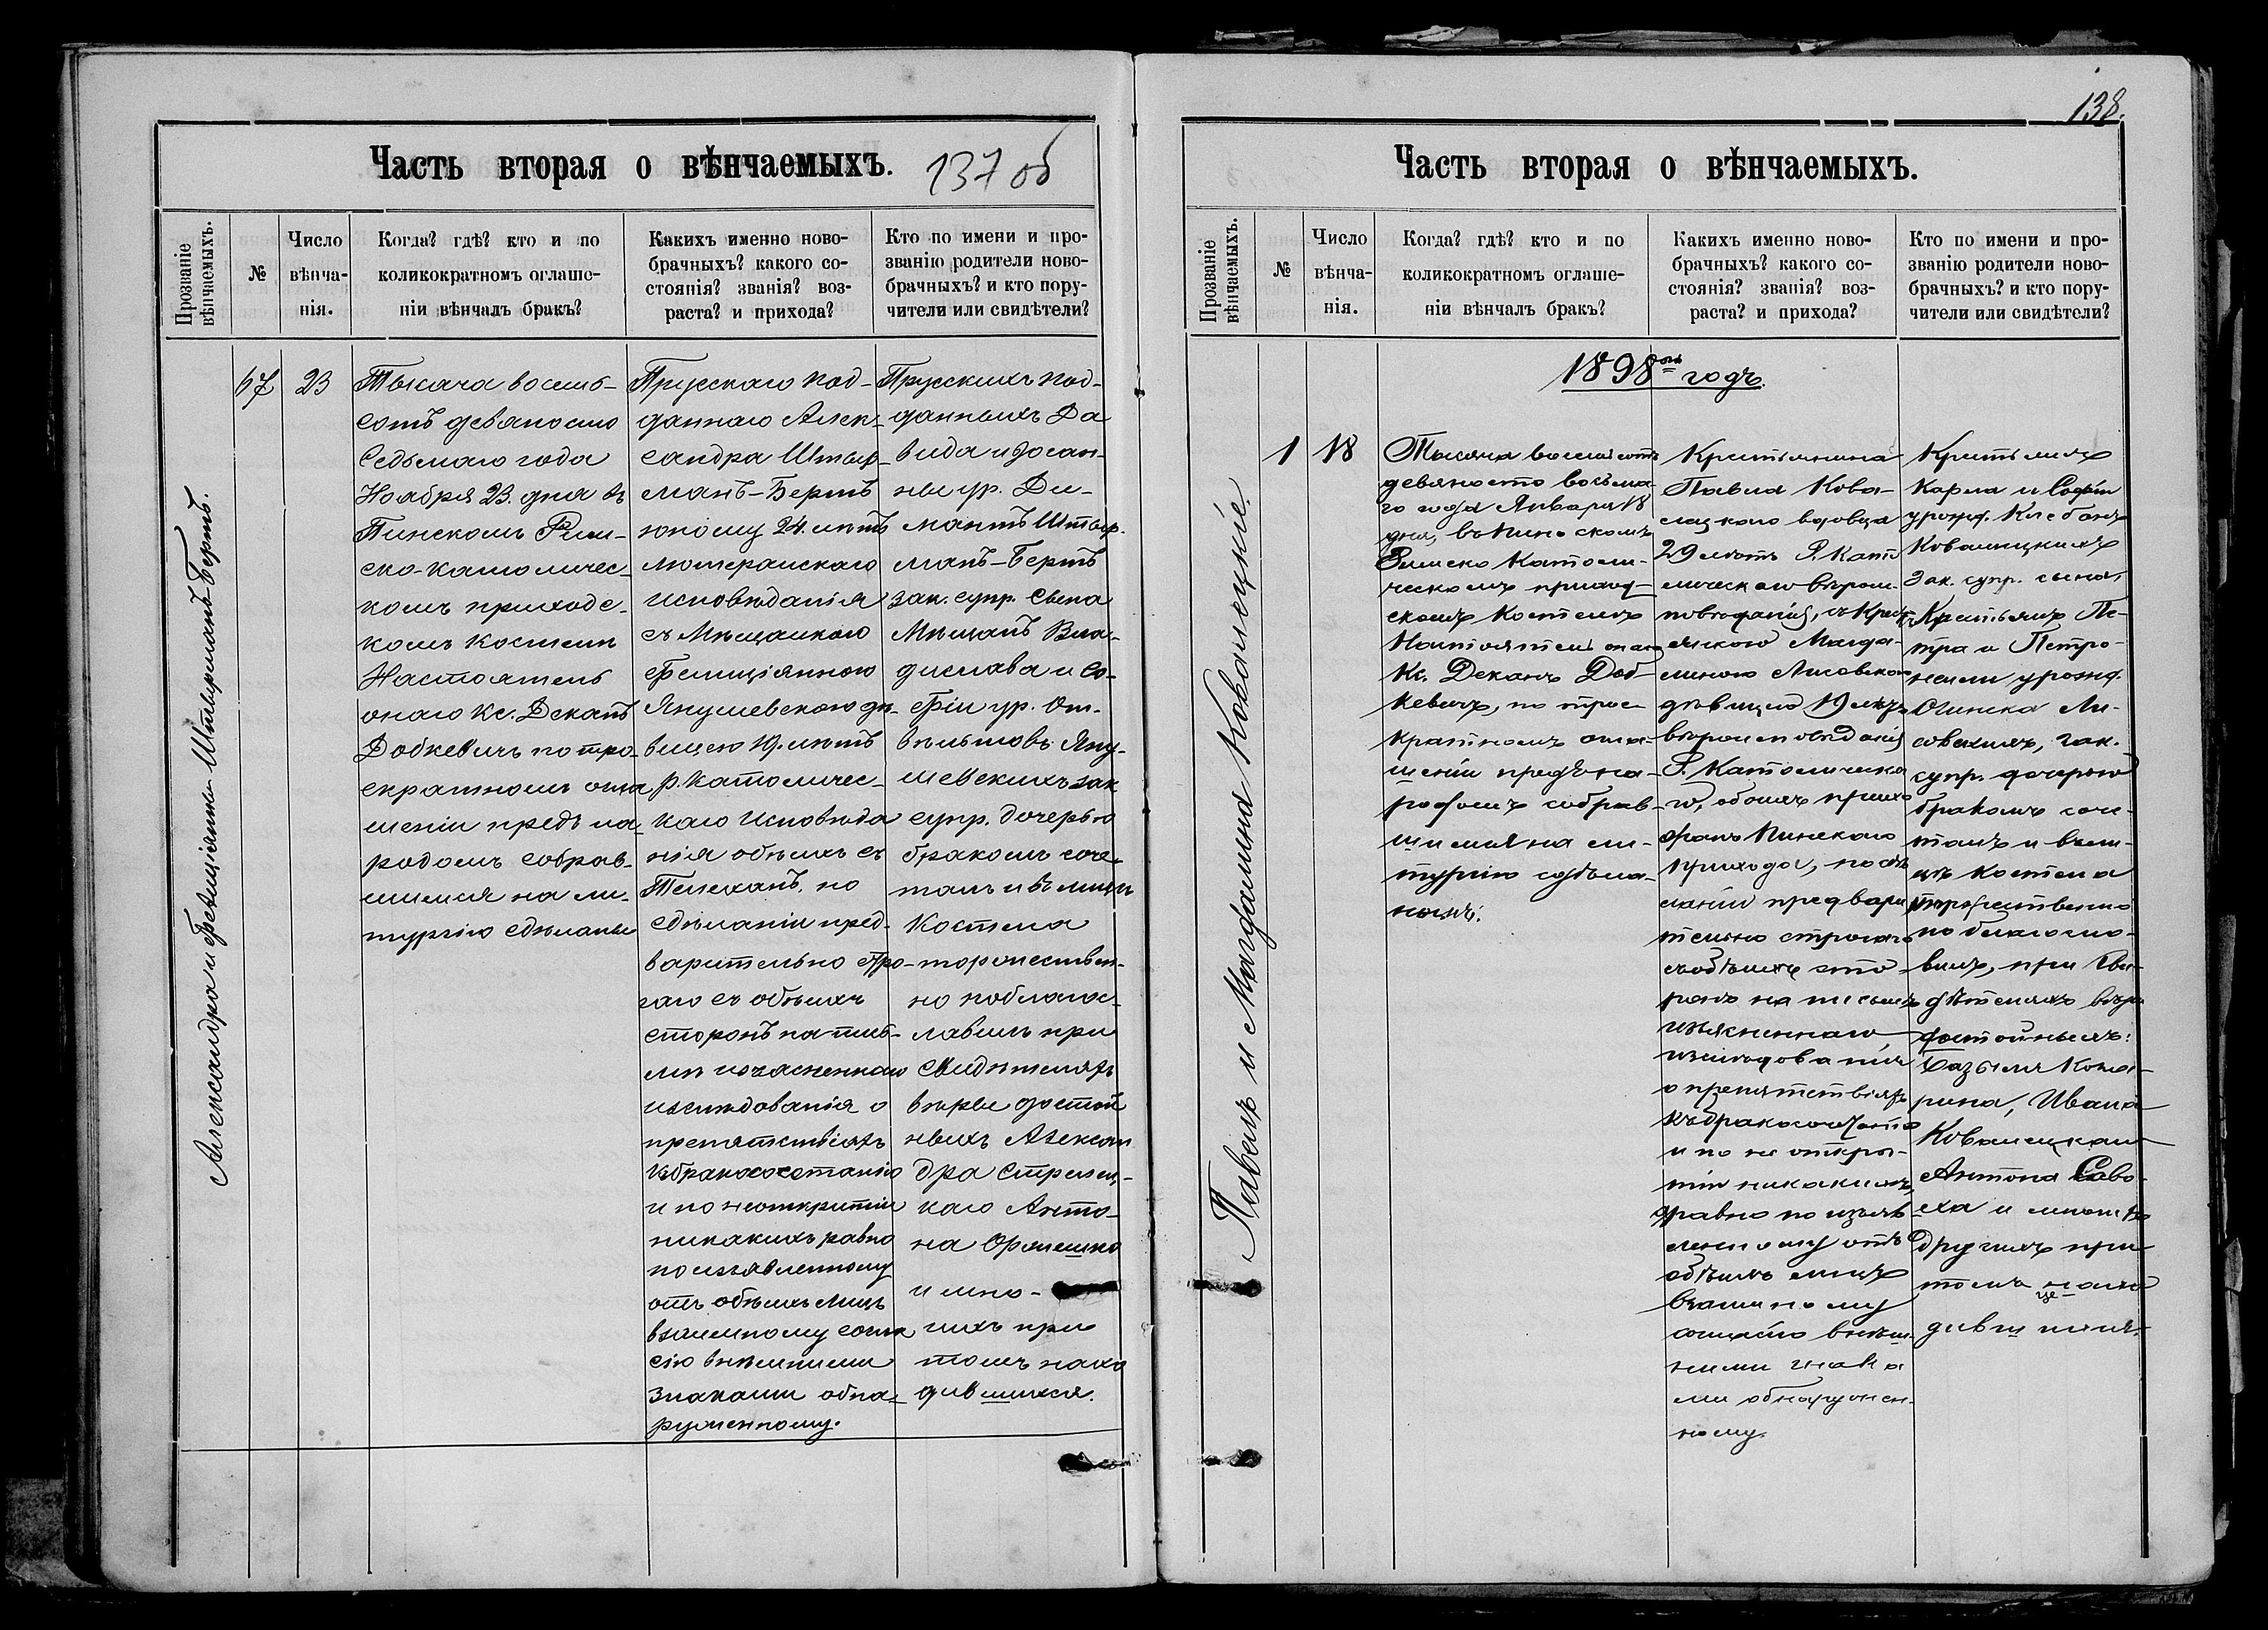 Часть вторая о вѣнчаемыхъ.
137 об
Прозваніе
вѣнчаемыхъ.
№
Число
вѣнча-
нія.
Когда? гдѣ? кто и по
коликократномъ оглаше-
ніи вѣнчалъ бракъ?
Какихъ именно ново-
брачныхъ? какого со-
стоянія? званія? воз-
раста? и прихода?
Кто по имени и про-
званію родители ново-
брачныхъ? и кто пору-
чители или свидѣтели?
67
23
Тысяча восемь-
сотъ девяносто
Седьмаго года
Ноября 23. дня въ
Пинскомъ Рим-
ско-католичес-
комъ приходс-
комъ костелѣ
Настоятель
онаго Кс. Деканъ
Добкевичъ по тро-
екратномъ огла
шеніи предъ на-
родомъ собрав-
шимся на ли-
тургію сдѣланы
Прусскаго под-
даннаго Алек-
сандра Штыр-
манъ-Бертъ
юношу 24. лѣтъ
лютеранскаго
исповѣданія
съ Мѣщанкою
Фелиціянною
Янушевскою дѣ-
вицею 19. лѣтъ
р. католичес-
каго исповѣда
нія обѣихъ съ
Телеханъ. по
сдѣланіи пред-
варительно стро-
гаго съ обѣихъ
сторонъ на пись-
мѣ изъясненнаго
изслѣдованія о
препятствіяхъ
къ бракосочетанію
и по неоткрытіи
никакихъ равно
по изъявленному
отъ обѣихъ лицъ
взаимному согла
сію внѣшними
знаками обна-
руженному.
Прусскихъ под-
данныхъ Да
вида и Іоан-
ны ур. Ди-
мантъ Штыр-
манъ-Бертъ
зак. супр. сына
Мѣщанъ Вла-
дислава и Со-
фіи ур.
Яну-
шевскихъ зак
супр. дочерью
бракомъ соче-
талъ и въ лицѣ
Костела
торжествен-
но поблагос-
лавилъ при
свидѣтеляхъ
вѣры достой
ныхъ Алексан
дра Стрелец-
каго Анто-
на Орлешко
и мно-
гихъ при
томъ нахо
дившихся.
Александра и Фелиціянна Штырманъ-Бертъ.
138.
Часть вторая о вѣнчаемыхъ.
Прозваніе
вѣнчаемыхъ.
№
Число
вѣнча-
нія.
Когда? гдѣ? кто и по
коликократномъ оглаше-
ніи вѣнчалъ бракъ?
Какихъ именно ново-
брачныхъ? какого со-
стоянія? званія? воз-
раста? и прихода?
Кто по имени и про-
званію родители ново-
брачныхъ? и кто пору-
чители или свидѣтели?
1898ой годъ.
1
18
Тысяча восемьсотъ
девяносто восьма-
го года Января 18
дня, въ Пинскомъ
Римско Католи-
ческомъ приход-
скомъ Костелѣ
Настоятель онаго
Кс. Деканъ Доб-
кевичъ, по трое
кратномъ огла-
шеніи предъ на-
родомъ собрав-
шимся на ли-
тургію сдѣла-
номъ.
Крестьянина
Павла Кова-
лецкаго вдовца
29 лѣтъ Р. Като
лическаго вѣроис-
повѣданія, съ Кресть-
янкою Магда-
линою Лисовскою
дѣвицею 19 лѣтъ
вѣроисповѣданія
Р. Католическа
го, обоихъ прихо
жанъ Пинскаго
прихода, по сдѣ
ланіи предвари
тельно строгаго
съ обѣихъ сто-
ронъ на письмѣ
изъясненнаго
изслѣдованія
о препятствіяхъ
къ бракосочетанію
и по не откры-
тіи никакихъ,
равно по изъяв-
ленному отъ
обѣихъ лицъ
взаимному
согласію внѣш-
ними знака
ми обнаружен-
ному.
Крестьянъ
Карла и Софіи
урожд. Колбанъ
Ковалецкихъ
Зак. супр. сына,
съ Крестьянъ Пе-
тра и Петро-
нели урожд.
Огинска Ли-
совскихъ, зак.
супр. дочерью
бракомъ соче-
талъ и въ ли-
цѣ костела
торжественно
по благосло-
вилъ, при Сви-
дѣтеляхъ вѣры
достойныхъ:
Базыля Кома-
рина, Ивана
Ковалецкаго
Антона Саво-
еха и многихъ
другихъ при
томъ нахо
дившихся.
Павелъ и Магдалина Ковалецкіе.